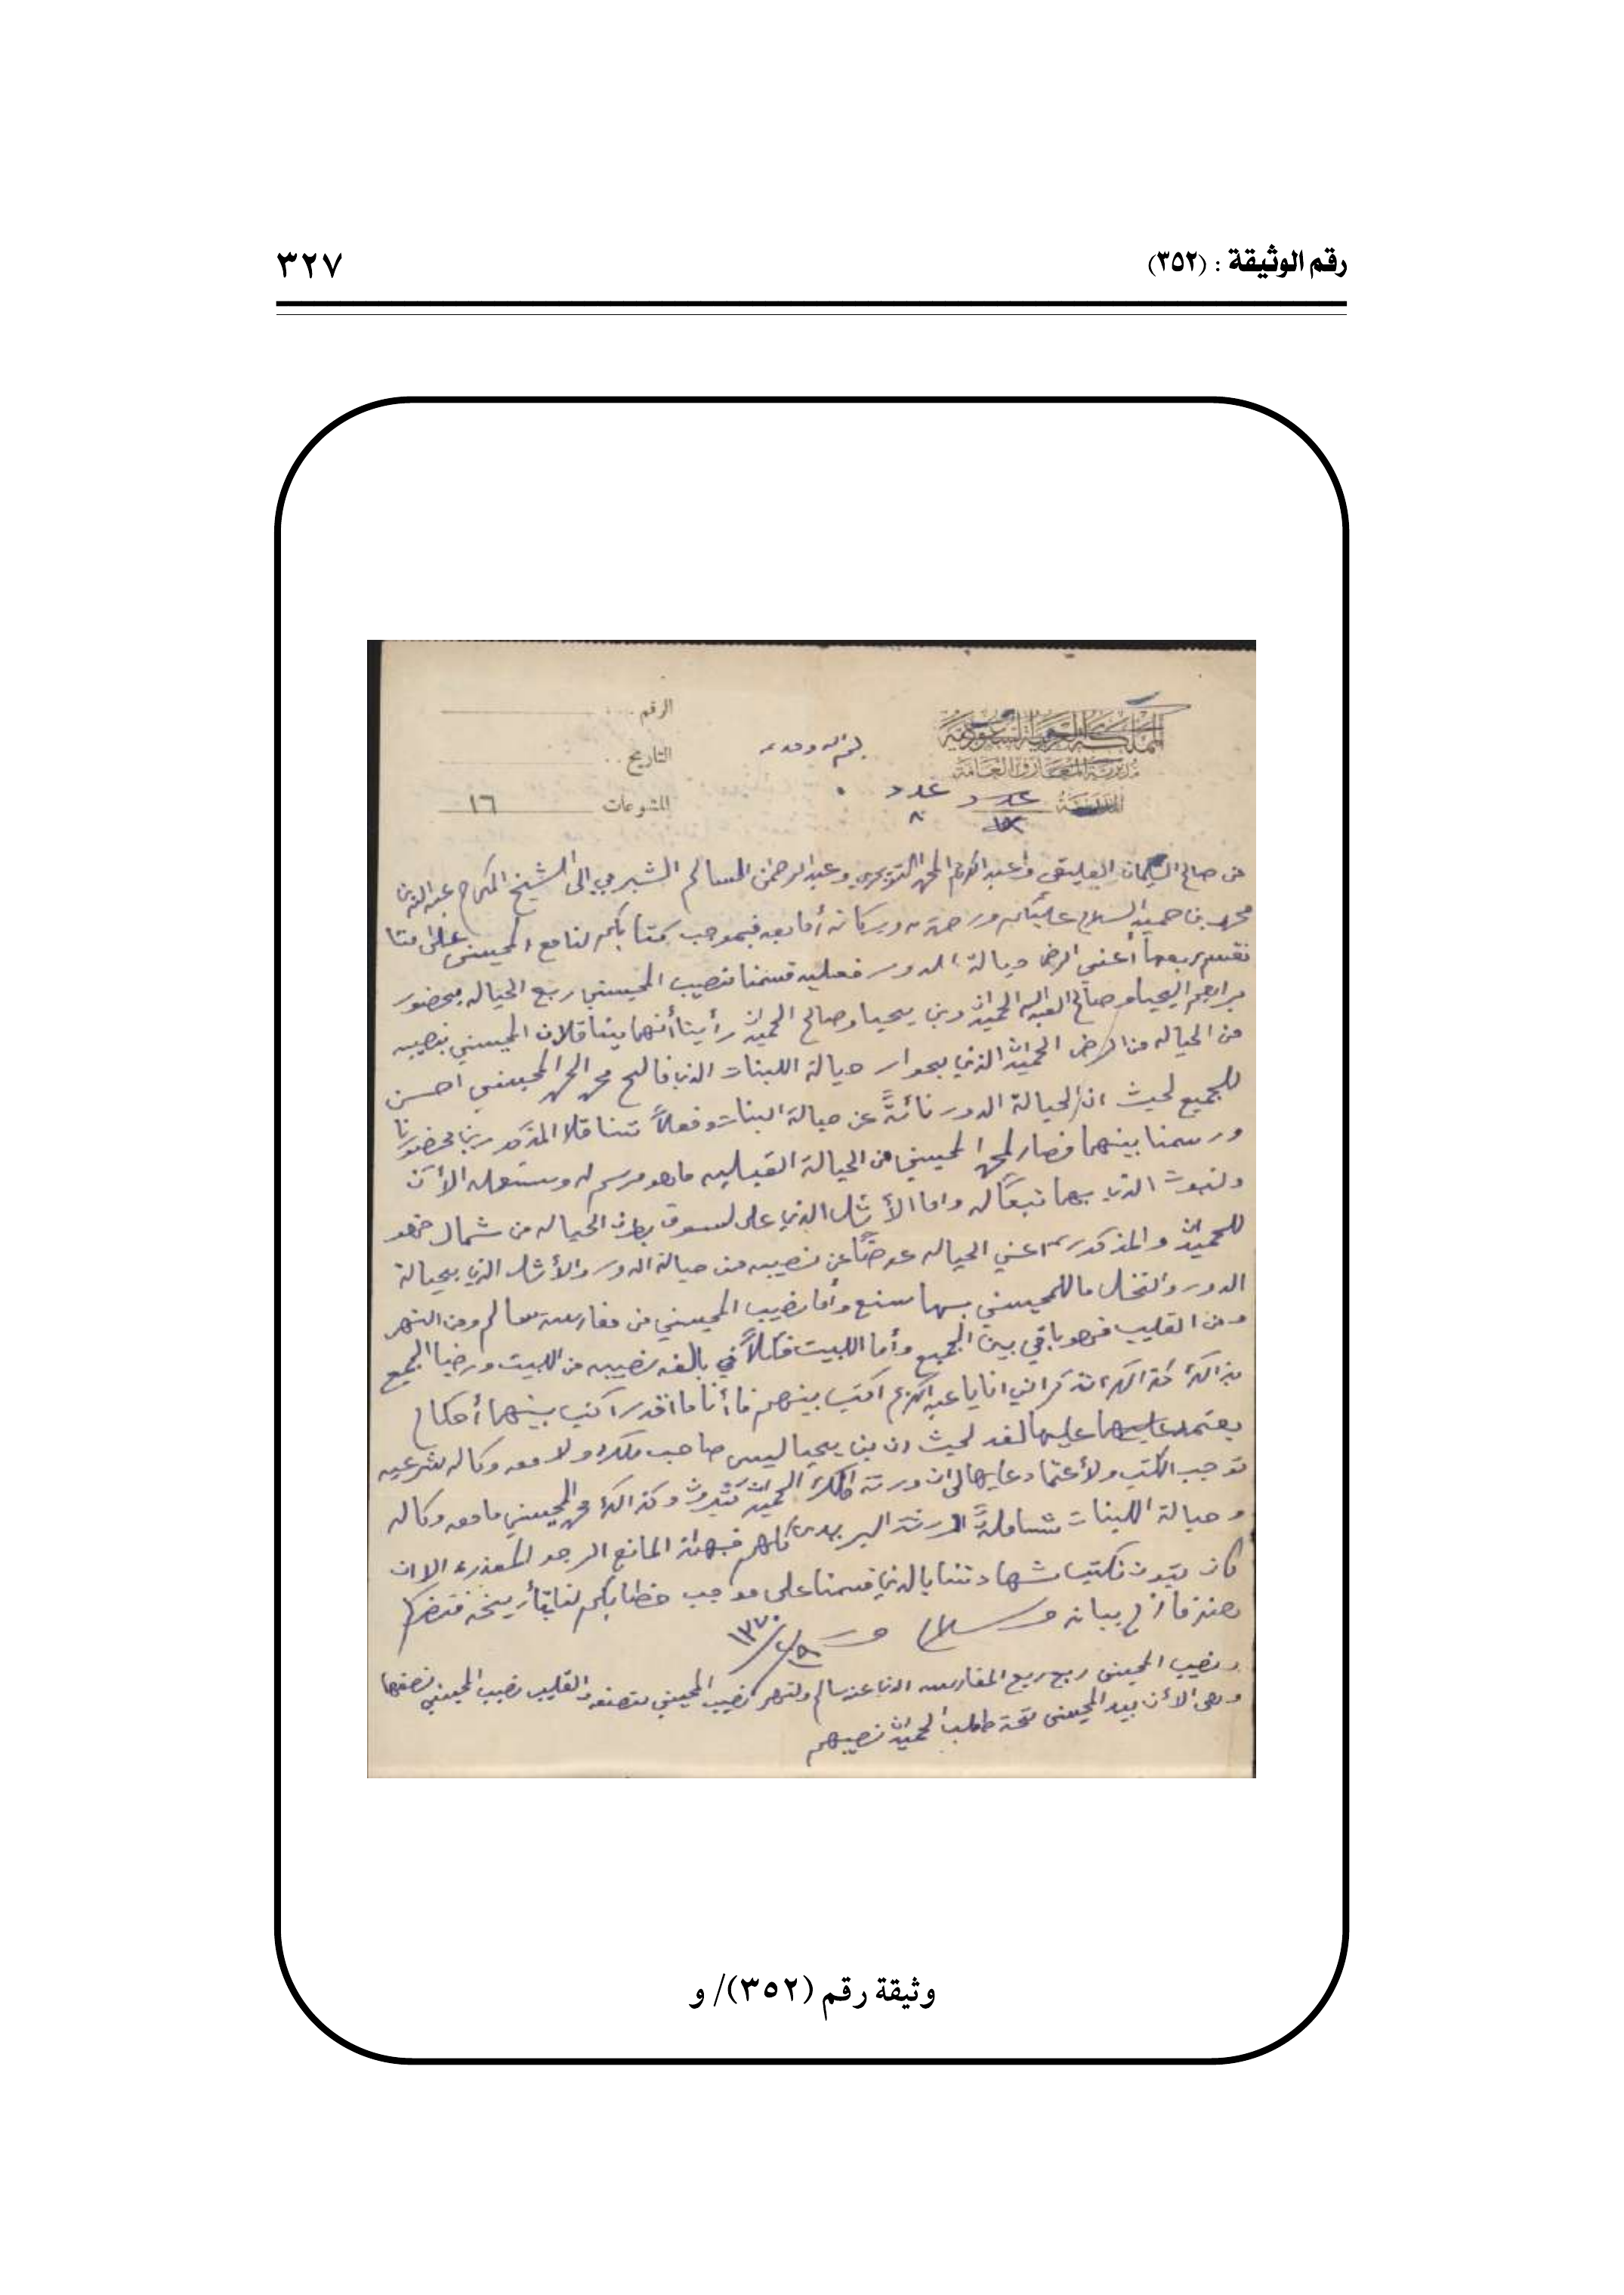 رقم الوثيقة : (٣٥٢)
٣٢٧
المملكة العربية السعودية
مديرية المعارف العامة
الرقم
التاريخ
المشوعات ١٦
بسم الله وحده
عدد عدد
٨
من صالح السليمان العليقي وعبدالكريم المحمد التويجري وعبدالرحمن السالم الشبرمي إلى الشيخ المكرم عبدالله بن
محمد بن حميد السلام عليكم ورحمة الله وبركاته أما بعد فبموجب كتابكم لنا مع المحيسني على أننا
نقسم ربعها أعني الرض حيالة الدور فعليه قسمنا نصيب المحيسني ربع الحياله بحضور
براهيم اليحيا وصالح العبدالله الحميدان وبن يحيا وصالح الحميدان رأينا أنهما يتناقلان المحيسني بنصيبه
من الحياله من ارض الحميدان الذي بجوار حيالة اللبنات الذي فالح محمد الحمد المحيسني احسن
للجميع لحيث ان الحيالة الدور نائةً عن حيالة البنات وفعلاً تناقلا المذكورين بحضورنا
ورسمنا بينهما فصار لمحمد المحيسني من الحيالة القبليه ماهو مرسم له ومستعمله الأن
ولنبوت الذي بهما تبعاً له واما الأثل الذي على لسوق بطرف الحياله من شمال فهو
للحميدان والمذكور اعني الحياله عوضاً عن نصيبه من حيالة الدور والأثل الذي بحيالة
الدور والنخل ما للمحيسني بها سنع وأما نصيب المحيسني من مغارسة سالم ومن النهر
ومن القليب فهو باقي بين الجميع وأما البيت فكلاً في بالغه نصيبه من البيت ورضيا الجميع
بذالك كذالك تذكر اني انا يا عبدالكريم اكتب بينهم فأنا ما اقدر اكتب بينهما أحكام
يعتمد عليها لغد لحيث ان بن يحيا ليس صاحب ملك ولا معه وكاله شرعيه
توجب الكتب ولأعتماد عليها لى ان ورثة الحميدان كثيرون وكذالك محمد المحيسني مامعه وكاله
وحيالة اللبنات شاملةً لورثة البريدي كلهم فبهذا المانع الرجو المعذره الا ان
كان يتون نكتب شهادتنا بالذي قسمنا على موجب خطابكم لنا بتأريخه فنضركم
هنز ما زم بيانه وسلام
١٣٧٠
ونصيب المحيسني ربع ربع المغارسه الذي عند سالم ولنهر نصيب المحيسني بنصفه والقليب نصيب المحيسني نصفها
وهي الأن بيد المحيسني تحت طلب الحميدان نصيبهم
وثيقة رقم (٣٥٢)/ و